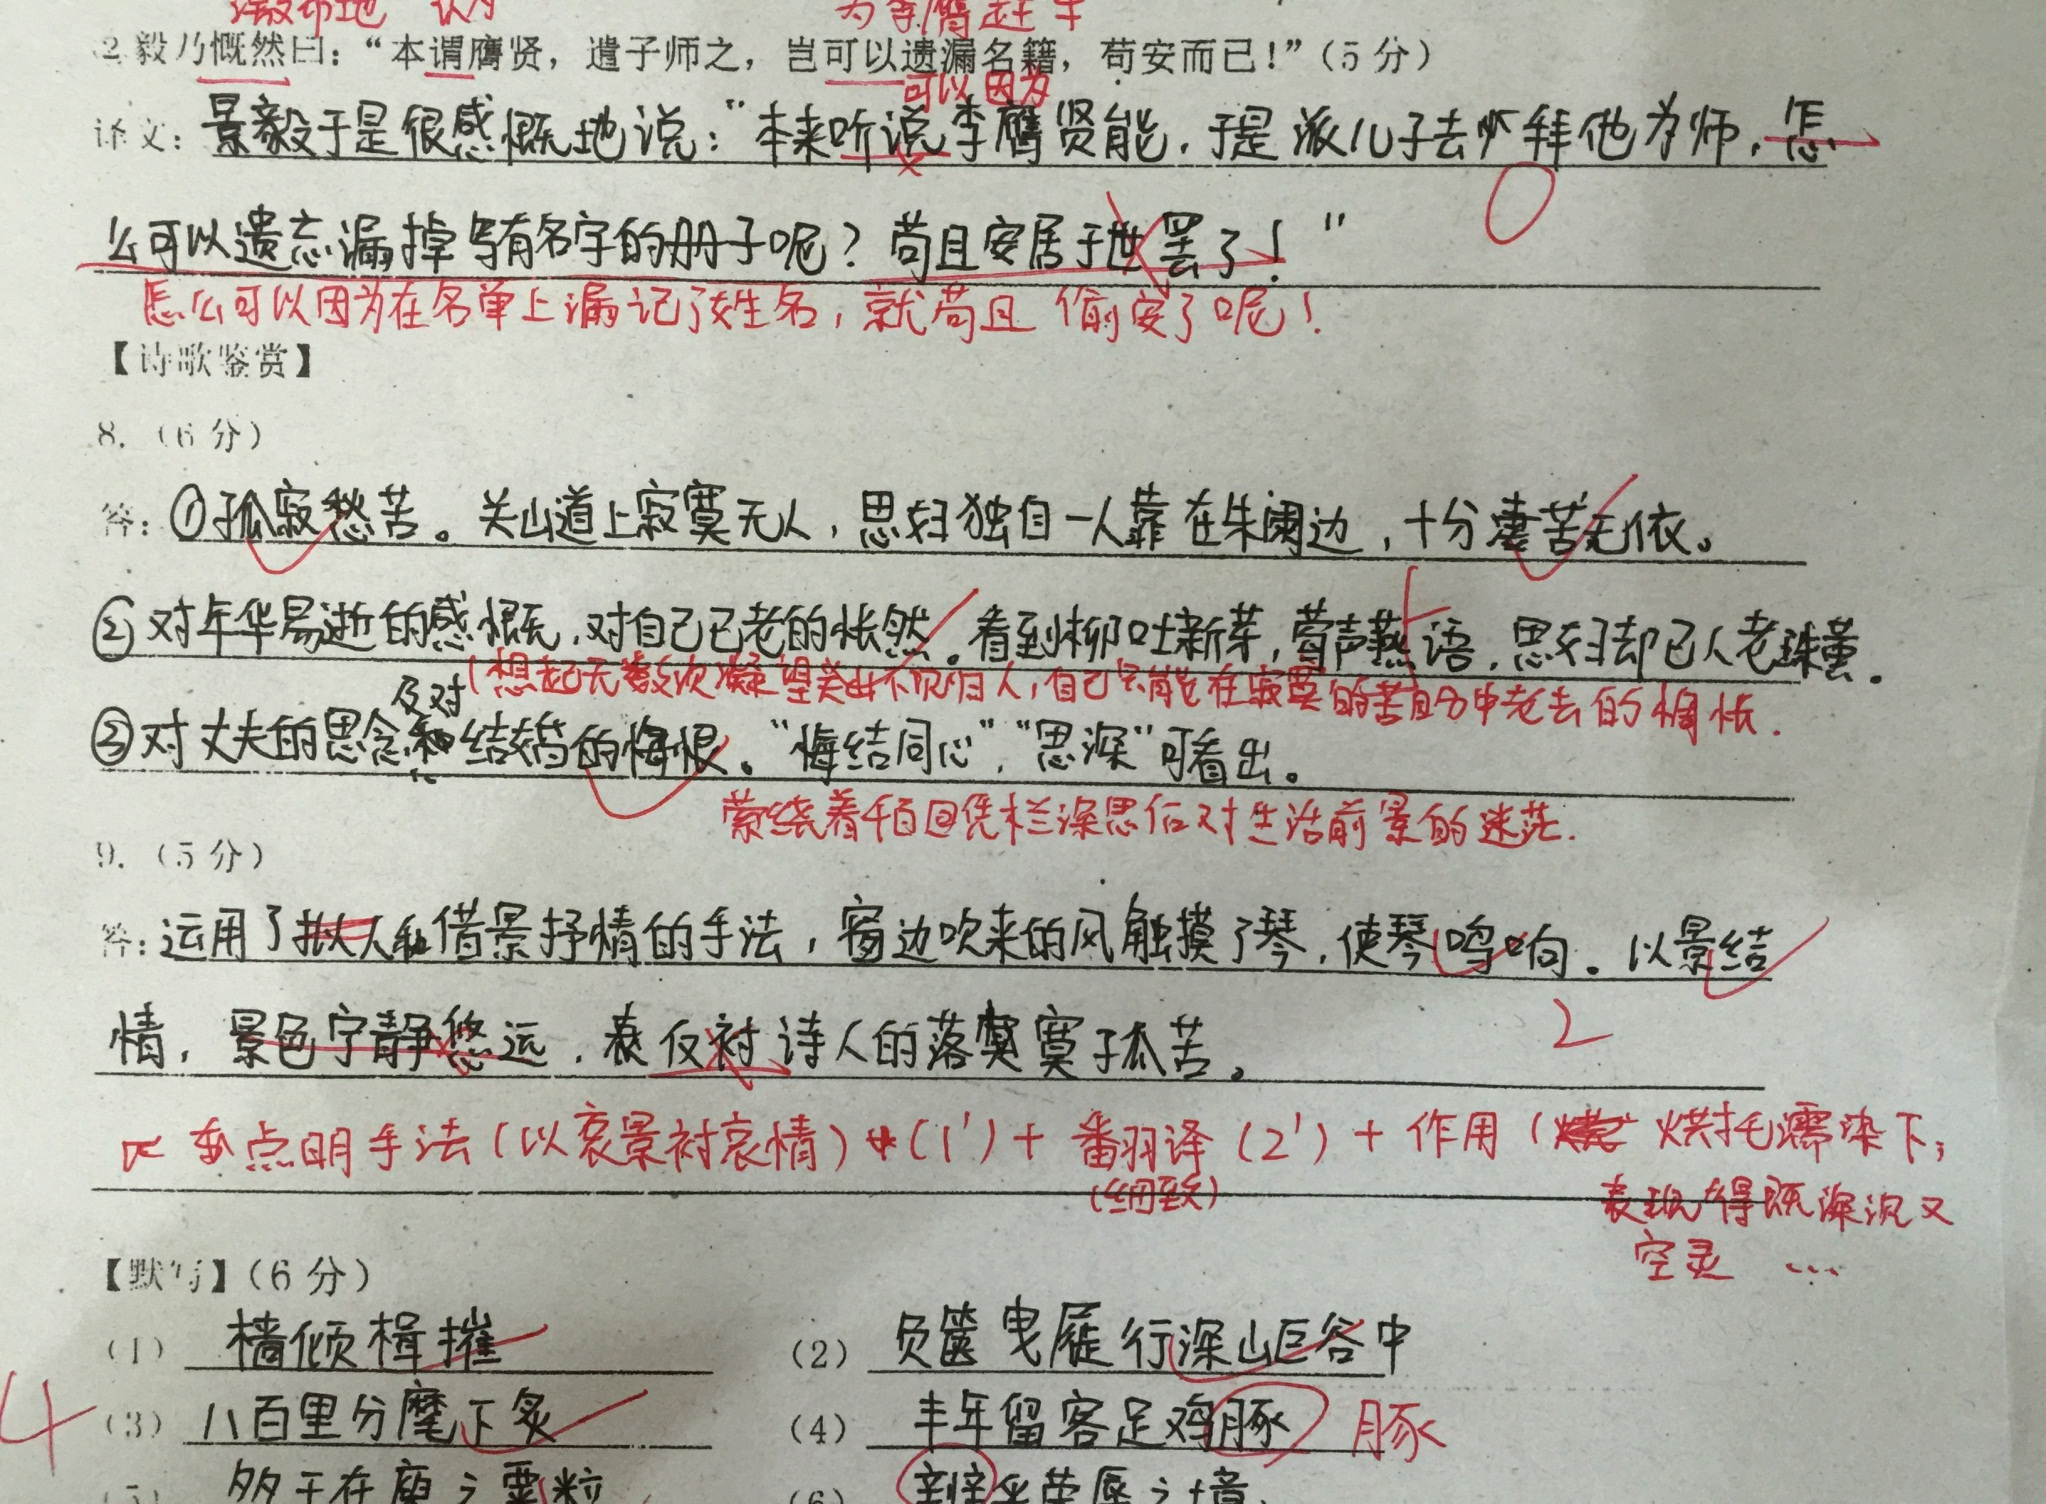 激昂地 认为
为李膺赶车
2.毅乃慨然曰：“本谓膺贤，遣子师之，岂可以遗漏名籍，苟安而已！”（5分）
可以因为
译文：景毅于是很感慨地说：“本来听说李膺贤能，于是派儿子去拜他为师，怎
0
么可以遗忘漏掉写有名字的册子呢？苟且安居于世罢了！”
怎么可以因为在名单上漏记了姓名，就苟且偷安了呢！
【诗歌鉴赏】
8.（6分）
答：①孤寂愁苦。关山道上寂寞无人，思妇独自一人靠在朱阑边，十分凄苦无依。
②对年华易逝的感慨，对自己已老的怅然。看到柳吐新芽，莺声燕语，思妇却已人老珠黄。
（想起无数次凝望关山不见归人，自己只能在寂寞的苦日子中老去的惆怅.
及对
③对丈夫的思念和结婚的悔恨。“悔结同心”，“思深”可看出。
萦绕着千百回凭栏深思后对生活前景的迷茫.
9.（5分）
答：运用了拟人和借景抒情的手法，窗边吹来的风触摸了琴，使琴鸣响。以景结
2
情，景色宁静悠远，反衬诗人的落寞孤苦。
点明手法（以哀景衬哀情）（1'）+ 翻译（2'）+ 作用（烘托濡染下，
（细致）
表现得既深沉又
空灵 …
【默写】（6分）
（1） 樯倾楫摧 （2） 负箧曳屣行深山巨谷中
4
（3） 八百里分麾下炙 （4） 丰年留客足鸡豚 豚
（5） 多于在庾之粟粒 （6） 辩乎荣辱之境